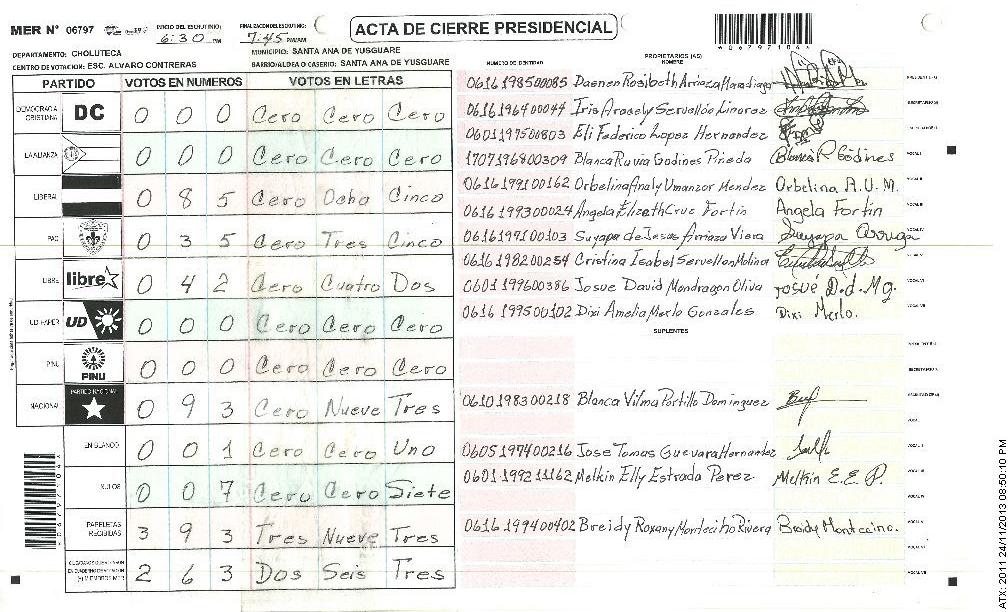 MER Nº 06797 INICIO DEL ESCRUTINIO: 6:30 PM FINALIZACION DEL ESCRUTINIO: 7:45 PM/AM ACTA DE CIERRE PRESIDENCIAL
DEPARTAMENTO: CHOLUTECA MUNICIPIO: SANTA ANA DE YUSGUARE
CENTRO DE VOTACION: ESC. ALVARO CONTRERAS BARRIO/ALDEA O CASERIO: SANTA ANA DE YUSGUARE
PARTIDO VOTOS EN NUMEROS VOTOS EN LETRAS
DEMOCRACIA CRISTIANA DC 0 0 0 Cero Cero Cero
LA ALIANZA 0 0 0 Cero Cero Cero
LIBERAL 0 8 5 Cero Ocho Cinco
PAC 0 3 5 Cero Tres Cinco
LIBRE libre 0 4 2 Cero Cuatro Dos
UD FAPER UD 0 0 0 Cero Cero Cero
PINU PINU 0 0 0 Cero Cero Cero
NACIONAL PARTIDO NACIONAL 0 9 3 Cero Nueve Tres
EN BLANCO 0 0 1 Cero Cero Uno
NULOS 0 0 7 Cero Cero Siete
PAPELETAS RECIBIDAS 3 9 3 Tres Nueve Tres
2 6 3 Dos Seis Tres
NUMERO DE IDENTIDAD PROPIETARIOS (AS)
NOMBRE
0616198500085 Daenen Rosibeth Arriaza Maradiaga
0616196400044 Iris Aracely Servellon Linarez
0601197500803 Eli Federico Lopez Hernandez
1707196800309 Blanca Ruvia Godines Pineda Blanca R Godines
0616199100162 Orbelina Analy Umanzor Mendez Orbelina A. U. M.
0616199300024 Angela Elizeth Cruz Fortin Angela Fortin
0616197100103 Suyapa de Jesus Arriaza Viera Suyapa Arriaga
0616198200254 Cristina Isabel Servellon Molina
0601197600386 Josue David Mondragon Oliva Josue D.d.Mg.
0616199500102 Dixi Amelia Merlo Gonzales Dixi Merlo.
SUPLENTES
0610198300218 Blanca Vilma Portillo Dominguez
0605197400216 Jose Tomas Guevara Hernandez
0601199211162 Melkin Elly Estrada Perez Melkin E.E P.
0616199400402 Breidy Roxany Montecino Rivera Breidy Montecino.
ATX: 2011 24/11/2013 08:50:10 PM